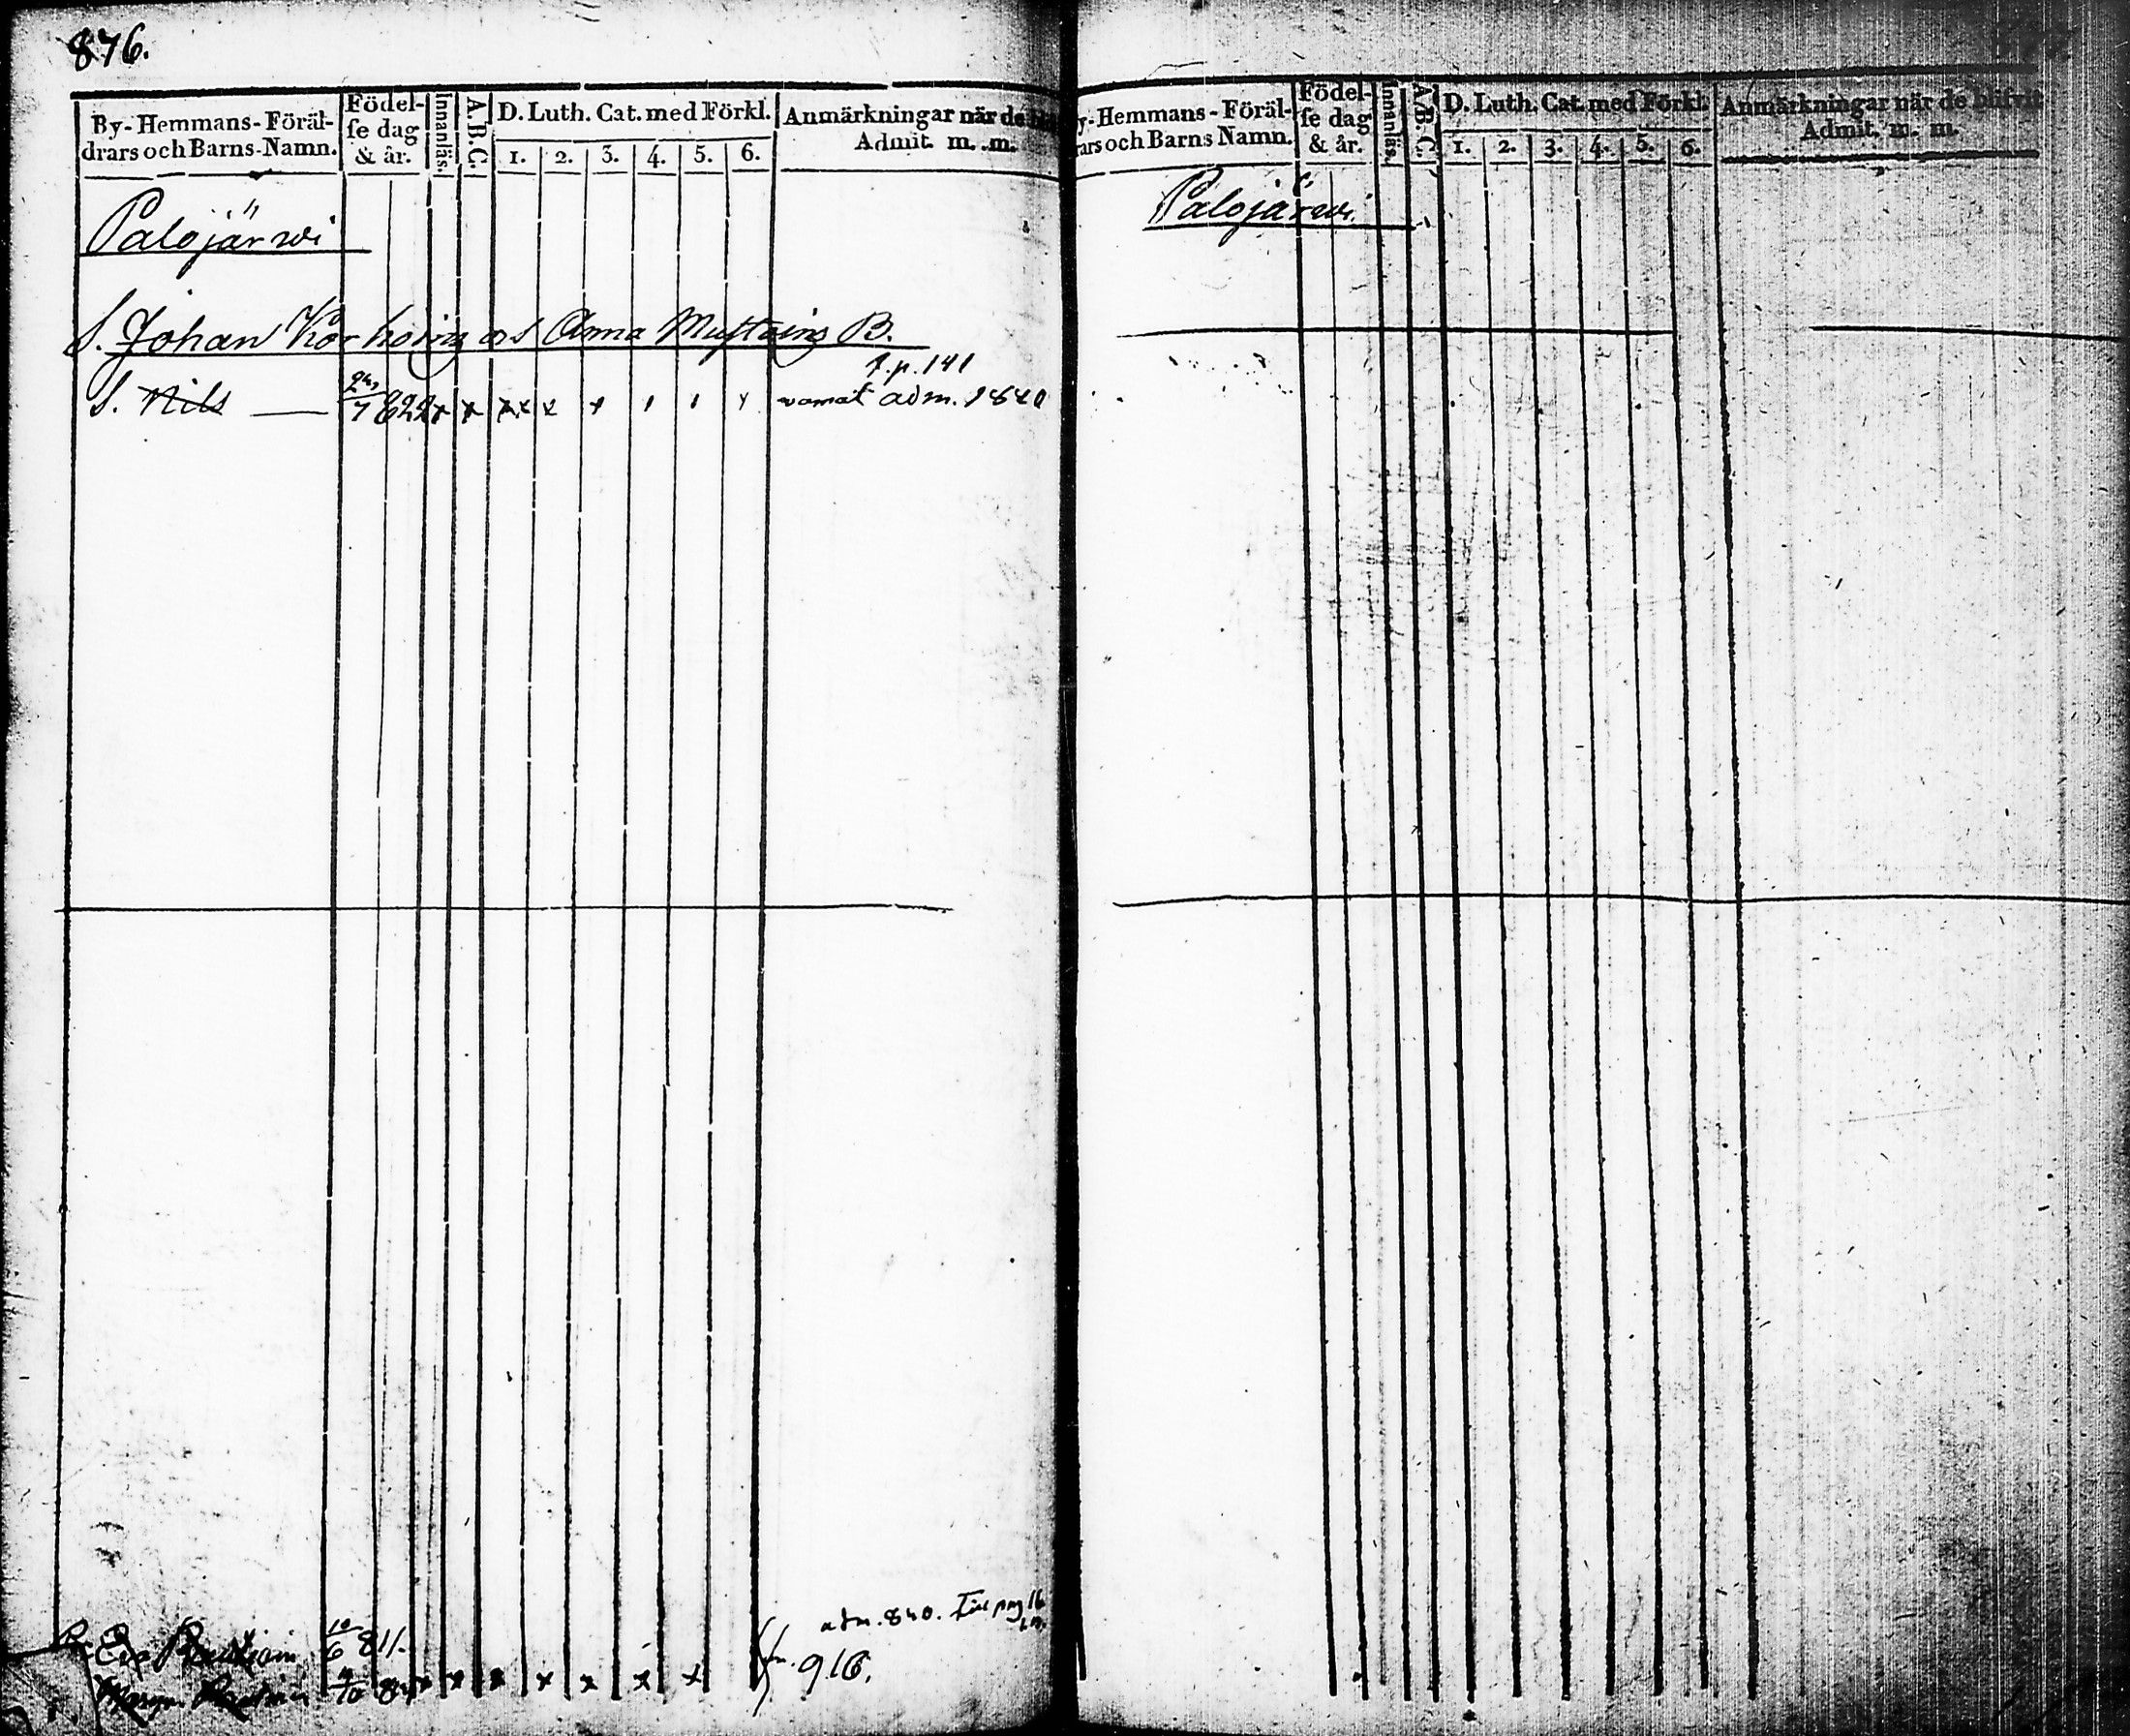 876.
By-Hemmans-Föräl-
drars och Barns-Namn.
Födel-
se dag
& år.
Innanläs.
A.B.C.
D. Luth. Cat. med Förkl.
1. 2. 3. 4. 5. 6.
Anmärkningar när de
Admit. m. m.
Palojärwi
S. Johan Korhoing os Anna Mustoing B.
f.p. 141
S. Nils 7 822 x x x x x x x adm. 1840
adm. 840.
Eva
6 811.
fr. 916.
10 x x x x x x x
y-Hemmans-Föräl-
rars och Barns Namn.
Födel-
se dag
& år.
Innanläs.
A.B.C.
D. Luth. Cat. med Förkl.
1. 2. 3. 4. 5. 6.
Anmärkningar när de blifvit
Admit. m. m.
Palojärwi